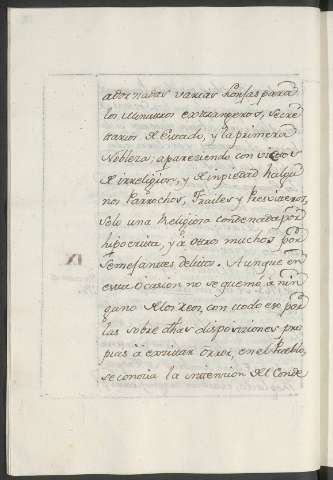 adornadas varias Lonjas para
los Ministros extrangeros, Secre
tarios de Estado, y la primera
Nobleza, apareziendo con visos
de irreligion, y de impiedad halgu
nos Parrochos, Frailes y Presviteros,
Solo una Religiosa condenada por
hipocrita, y á otros muchos por
Semejantes delitos. Aunque en
IX
esta ocasion no se quemó á nin
guno de los reos, con todo eso por
las sobre dhas disposiziones pro
pias á exzitar orror, en el Pueblo,
se conozia la intension del Conde